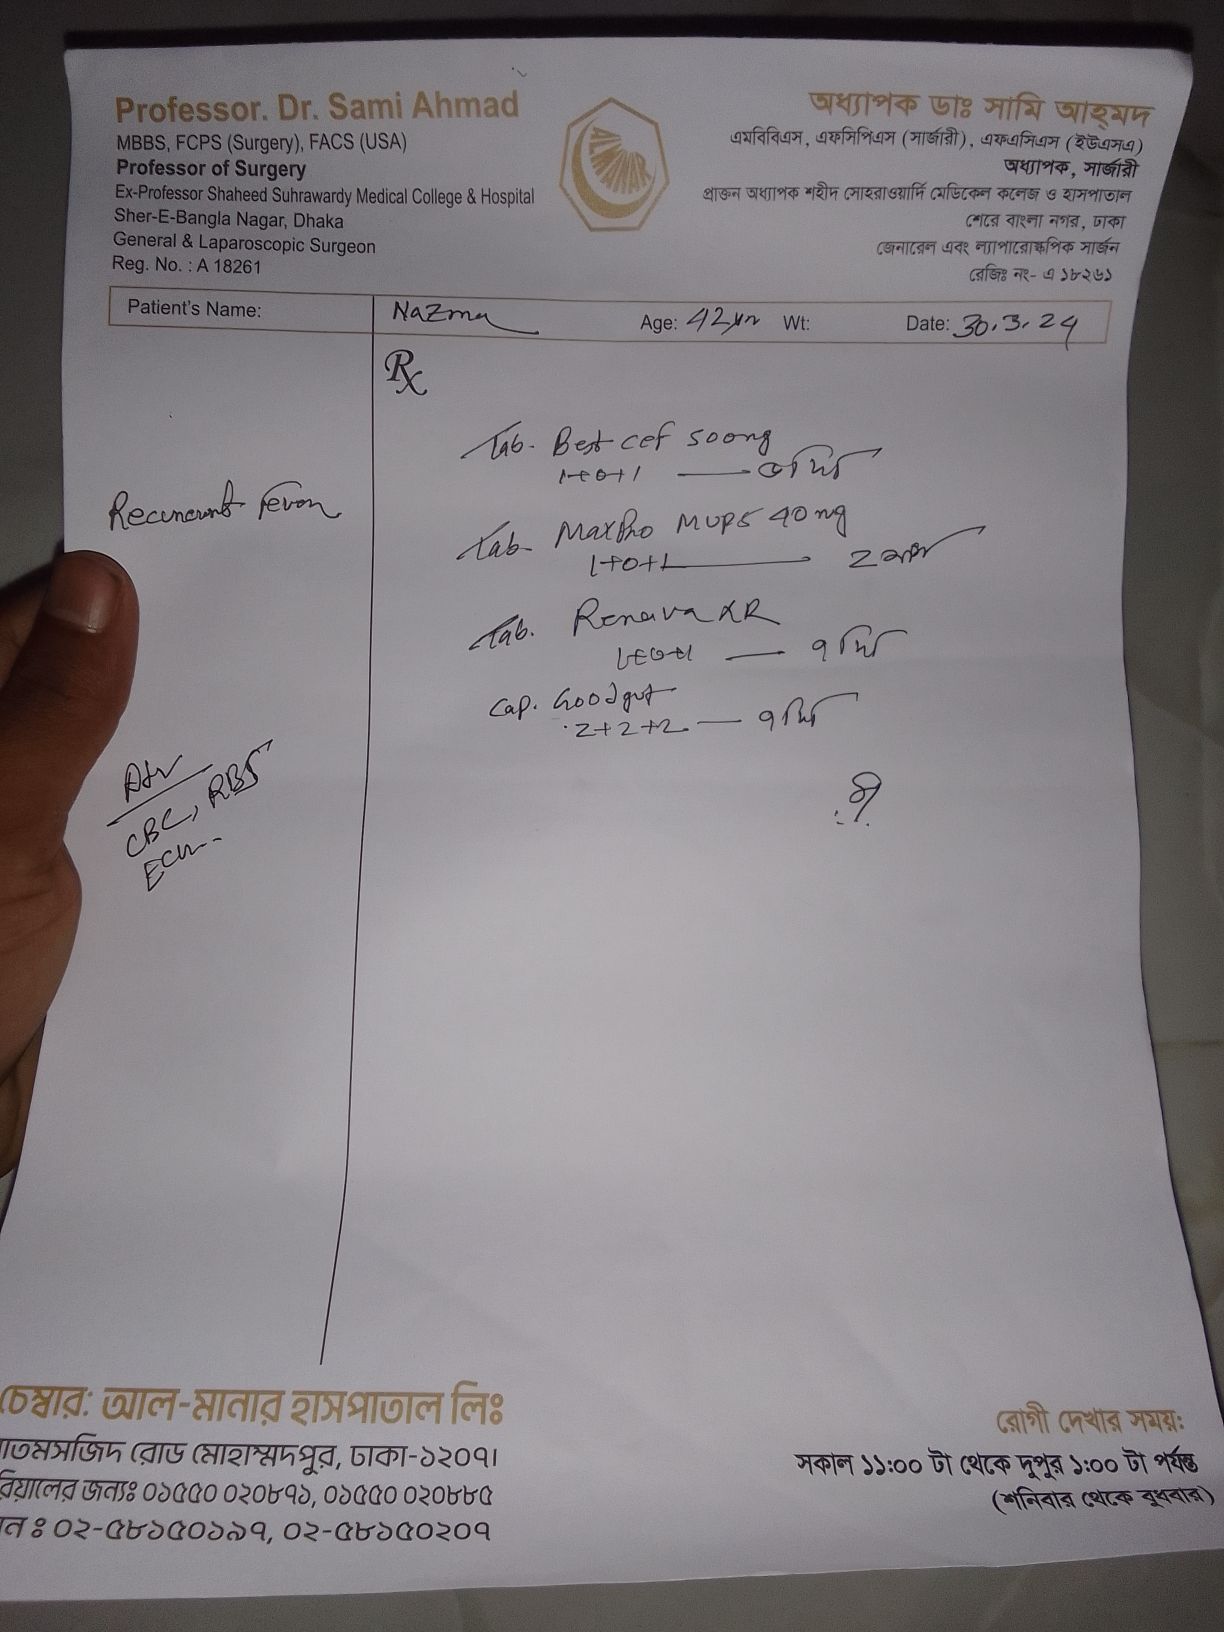 Professor. Dr. Sami Ahmad
MBBS, FCPS (Surgery), FACS (USA)
Professor of Surgery
Ex-Professor Shaheed Suhrawardy Medical College & Hospital
Sher-E-Bangla Nagar, Dhaka
General & Laparoscopic Surgeon
Reg. No. : A 18261
অধ্যাপক ডাঃ সামি আহ্‌মদ
এমবিবিএস, এফসিপিএস (সার্জারী), এফএসিএস (ইউএসএ)
অধ্যাপক, সার্জারী
প্রাক্তন অধ্যাপক শহীদ সোহরাওয়ার্দি মেডিকেল কলেজ ও হাসপাতাল
শেরে বাংলা নগর, ঢাকা
জেনারেল এবং ল্যাপারোস্কপিক সার্জন
রেজিঃ নং- এ ১৮২৬১
Patient's Name: Nazma Age: 42 yr Wt: Date: 30.3.24
Rx
Tab. Best cef 500mg
1+0+1 —
Tab. MaxPro MUPS 40 mg
1+0+1 — 2
Tab. XR
1+0+1 — ৭ দিন
Cap. Goodgut
2+2+2 — ৭ দিন
Recurrent fever
Adv
CBC, RBS
চেম্বার: আল-মানার হাসপাতাল লিঃ
রোড মোহাম্মদপুর, ঢাকা-১২০৭।
জন্যঃ ০১৫৫০ ০২০৮৭১, ০১৫৫০ ০২০৮৮৫
ঃ ০২-৫৮১৫০১৯৭, ০২-৫৮১৫০২০৭
রোগী দেখার সময়:
সকাল ১১:০০ টা থেকে দুপুর ১:০০ টা পর্যন্ত
(শনিবার থেকে বুধবার)